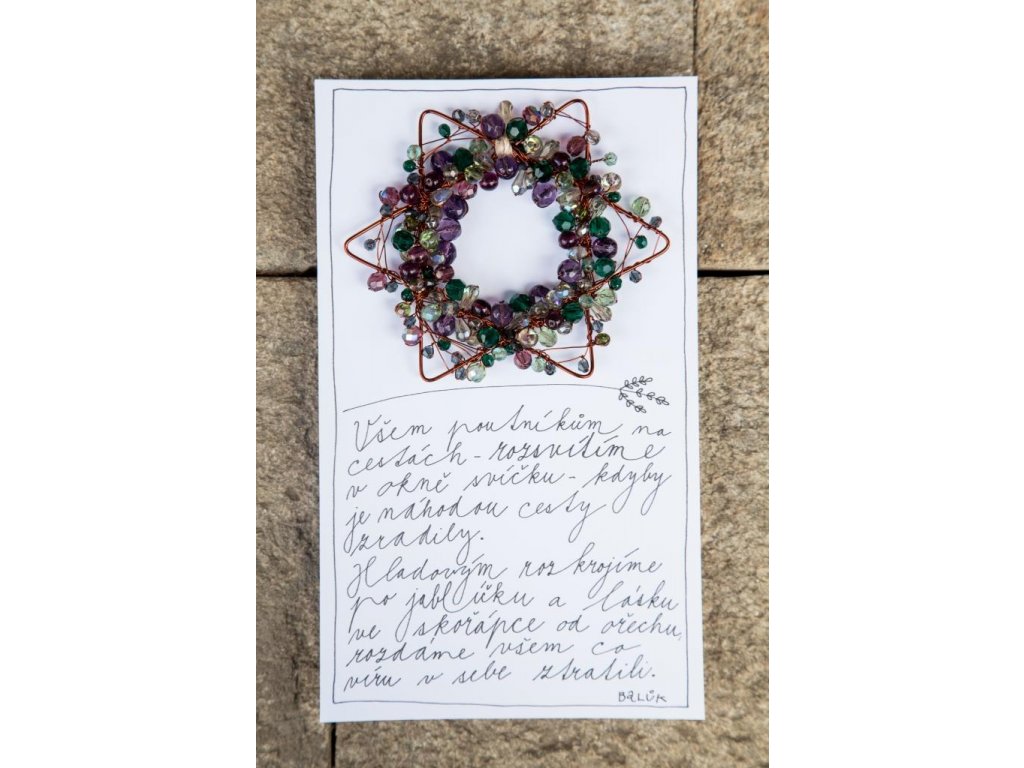 Všem poutníkům na
cestách - rozsvítíme
v okně svíčku - kdyby
je náhodou cesty
zradily.
Hladovým rozkrojíme
po jablůňku a lásku
ve skořápce od ořechu,
rozdáme všem co
víru v sebe ztratili.
BALŮK